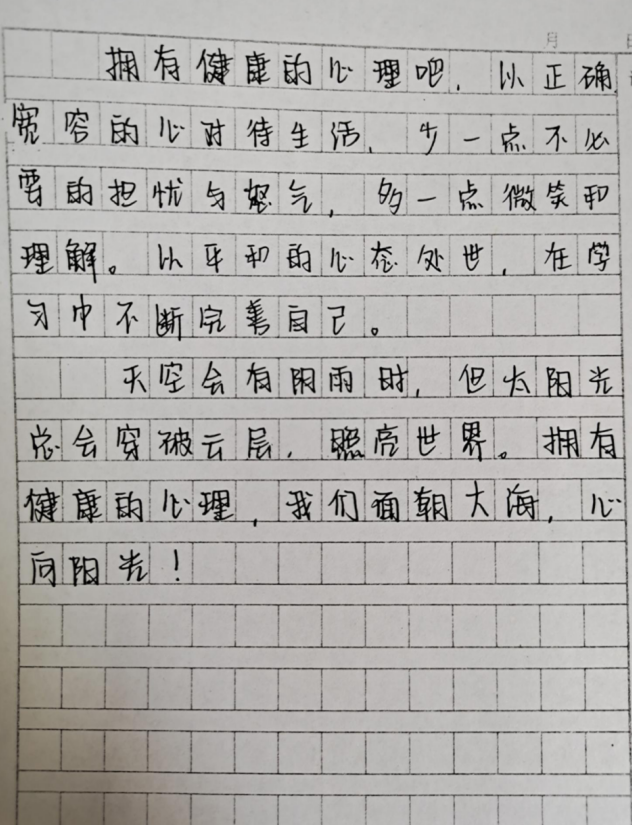 月 日
拥有健康的心理吧，以正确
宽容的心对待生活，少一点不必
要的担忧与怒气，多一点微笑和
理解。以平和的心态处世，在学
习中不断完善自己。
天空会有阴雨时，但太阳光
总会穿破云层，照亮世界。拥有
健康的心理，我们面朝大海，心
向阳光！